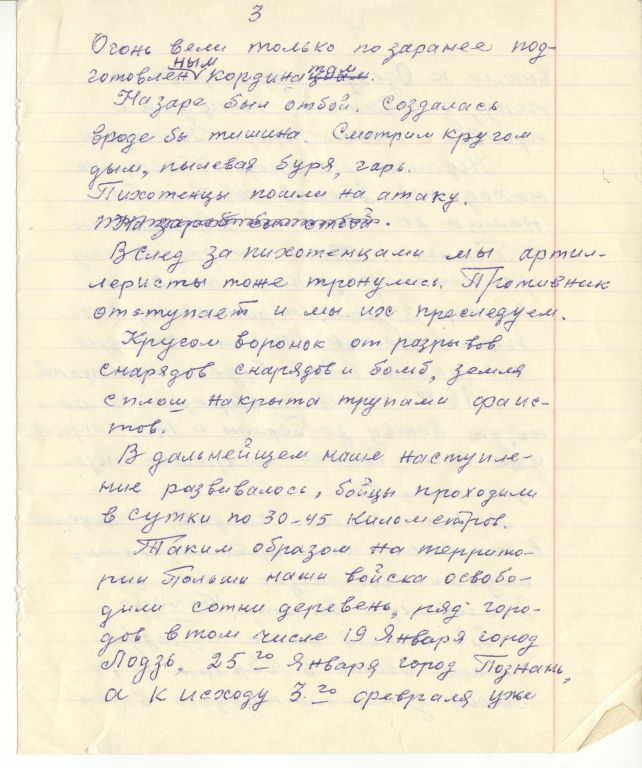 3
Огонь вели только по заранее под-
готовленным кординатам.
На заре был отбой. Создалась
вроде бы тишина. Смотрим кругом
дым, пылевая буря, гарь.
Пихотенцы пошли на атаку.
На заре был отбой.
Вслед за пихотенцами мы артил-
леристы тоже тронулись. Противник
отступает и мы их преследуем.
Крусом воронок от разрывов
снарядов снарядов и бомб, земля
сплош накрыта трупами фаис-
тов.
В дальнейщем наше наступле-
ние развивалось, бойцы проходили
в сутки по 30-45 километров.
Таким образом на террито-
рии Польши наши войска освобо-
дили сотни деревень, ряд горо-
дов в том числе 19 Января город
Лодзь, 25го Января город Познань,
а к исходу 3.го февраля уже